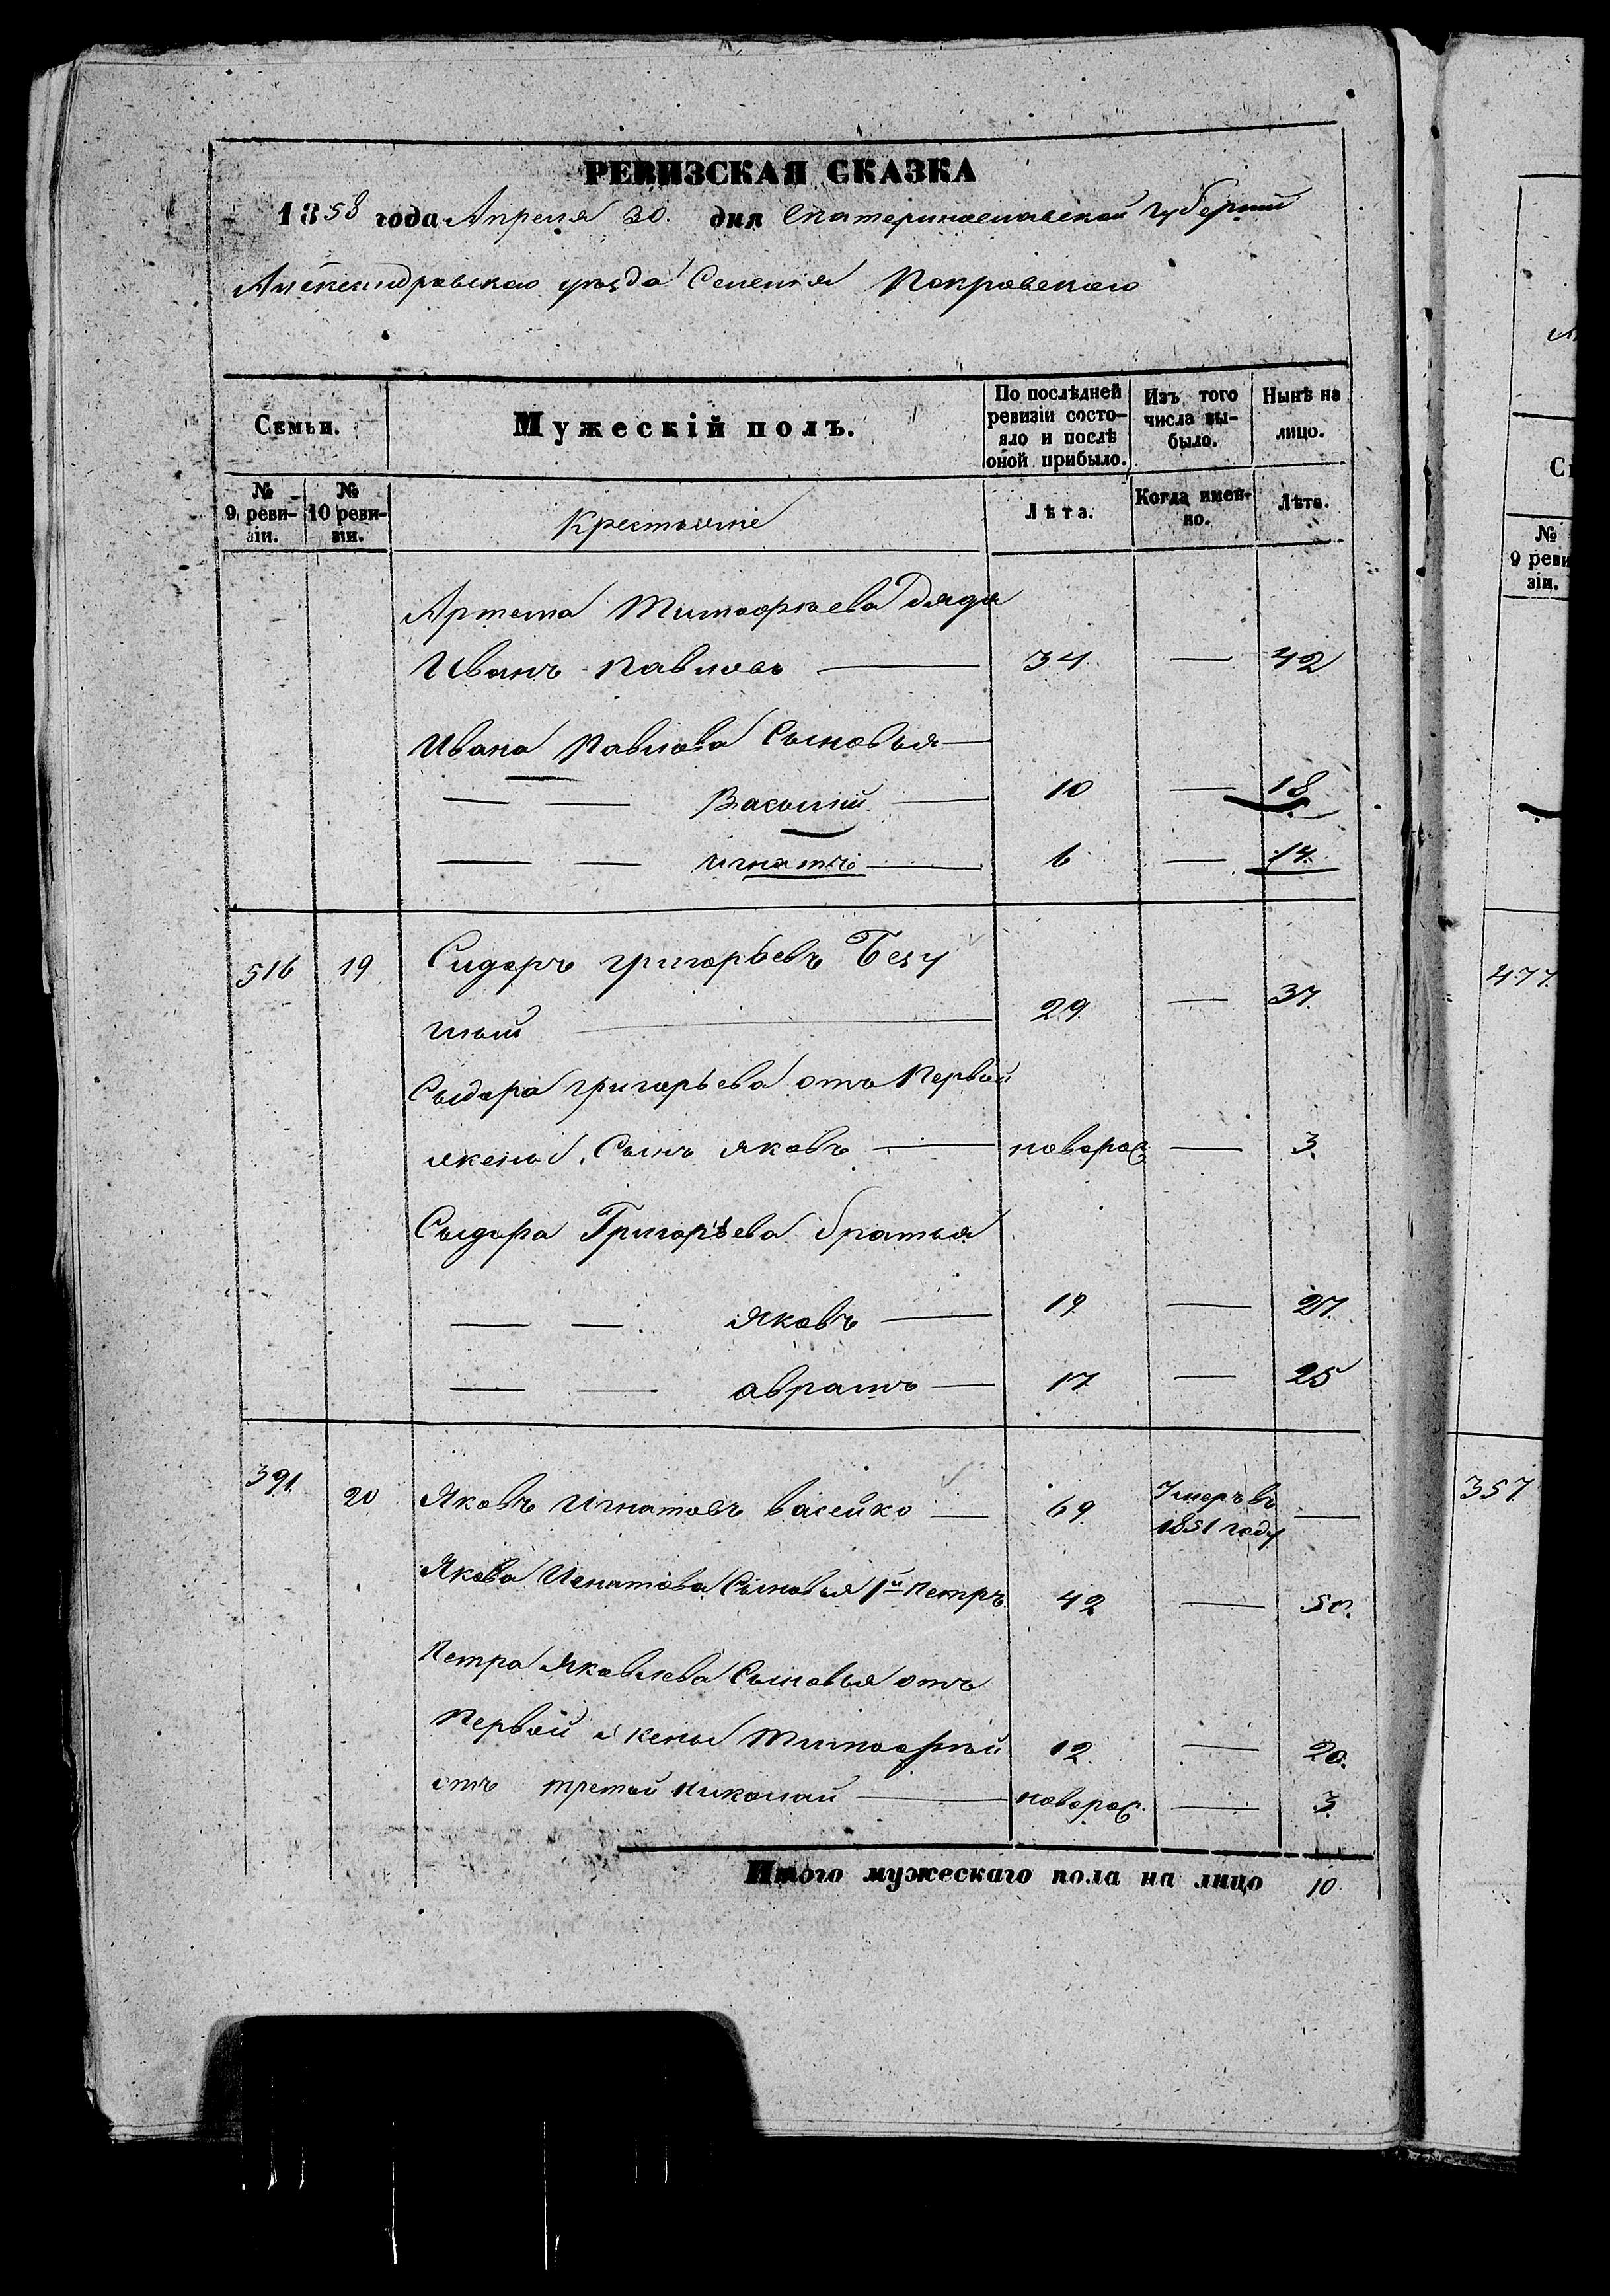 РЕВИЗСКАЯ СКАЗКА
1858 года Апреля 30. дня Екатеринославской Губерніи
Александровскаго уѣзда Селенія Покровскаго
Семьи.
Мужескій полъ.
По послѣдней ревизіи состо-
яло и послѣ оной прибыло.
Изъ того числа вы-
было.
Нынѣ на лицо.
№ 9 реви-
зіи.
№ 10 реви-
зіи.
Крестьяне
Лѣта.
Когда имен-
но.
Лѣта.
Артема Тимофѣева дядя
Иванъ Павловъ — 34. — 42
Ивана Павлова Сыновья —
— — Василій — 10 — 18
— — Игнатъ — 6 — 14.
516 19 Сидоръ григорьевъ Безу
глый — 29. — 37.
Сыдора григорьева отъ Первой
жены. Сынъ яковъ — новорож — 3.
Сыдора Григорьева братья
— — яковъ — 19. — 27.
— — аврамъ — 17. — 25
391. 20 Яковъ Игнатовъ васейко — 69. Умеръ въ
1851 году —
Якова Игнатова Сыновья 1й Петръ 42 — 50.
Петра Яковлева Сыновья отъ
Первой жены Тимофей 12. — 20.
отъ третей николай — новорож. — 3.
Итого мужескаго пола на лицо 10
№ 9 реви
зіи.
477.
357.